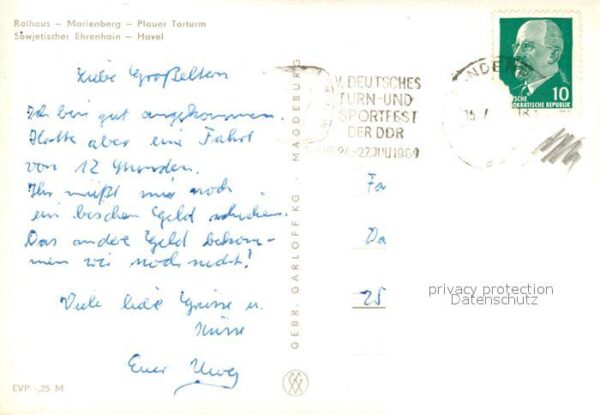 Rathaus – Marienberg – Plauer Torturm
Sowjetischer Ehrenhain – Havel
Liebe Großeltern
Ich bin gut angekommen.
Hatte aber eine Fahrt
von 12 Stunden.
Ihr müßt mir noch
ein bischen Geld schicken.
Das andere Geld bekom-
men wir noch nicht!
Viele liebe Grüsse u.
Küsse
Euer Uwe
EVP -,25 M
GEBR. GARLOFF KG · MAGDEBURG
V. DEUTSCHES
TURN- UND
SPORTFEST
DER DDR
24.-27. JULI 1969
10
DEUTSCHE
DEMOKRATISCHE REPUBLIK
Fa
Da
25
privacy protection
Datenschutz